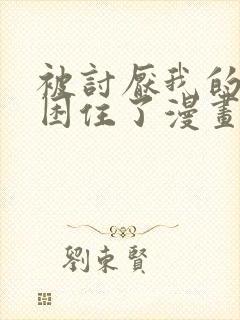 被討厭我的
困住了漫畫
劉東賢